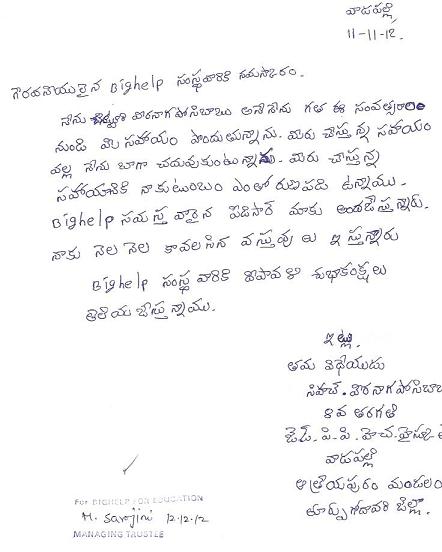 వాడపల్లి
11-11-12.
గౌరవనీయులైన Bighelp సంస్థవారికి నమస్కారం.
నేను వీరనాగపోసిబాబు అనేనేను గత ఈ సంవత్సరాల
నుండి మీ సహాయం పొందుతున్నాను. మీరు చేస్తున్న సహాయం
వల్ల నేను బాగా చదువుకుంటున్నాను. మీరు చేస్తున్న
సహాయానికి నాకుటుంబం ఎంతో రుణపడి ఉన్నాము.
Bighelp సమస్త వారైన మాకు అందజేస్తున్నారు.
నాకు నెల నెల కావలసిన వస్తువులు ఇస్తున్నారు
Bighelp సంస్థ వారికి దీపావళి శుభాకంక్షలు
తెలియజేస్తున్నాము.
ఇట్లు,
తమ విధేయుడు
వీరనాగపోసిబాబ
8వ తరగతి
జెడ్. పి. పి. హెచ్. హైస్కూ
వాడపల్లి
ఆత్రేయపురం మండలం
తూర్పుగోదావరి జిల్లా.
For BIGHELP FOR EDUCATION
M. Sarojini 12.12.12
MANAGING TRUSTEE